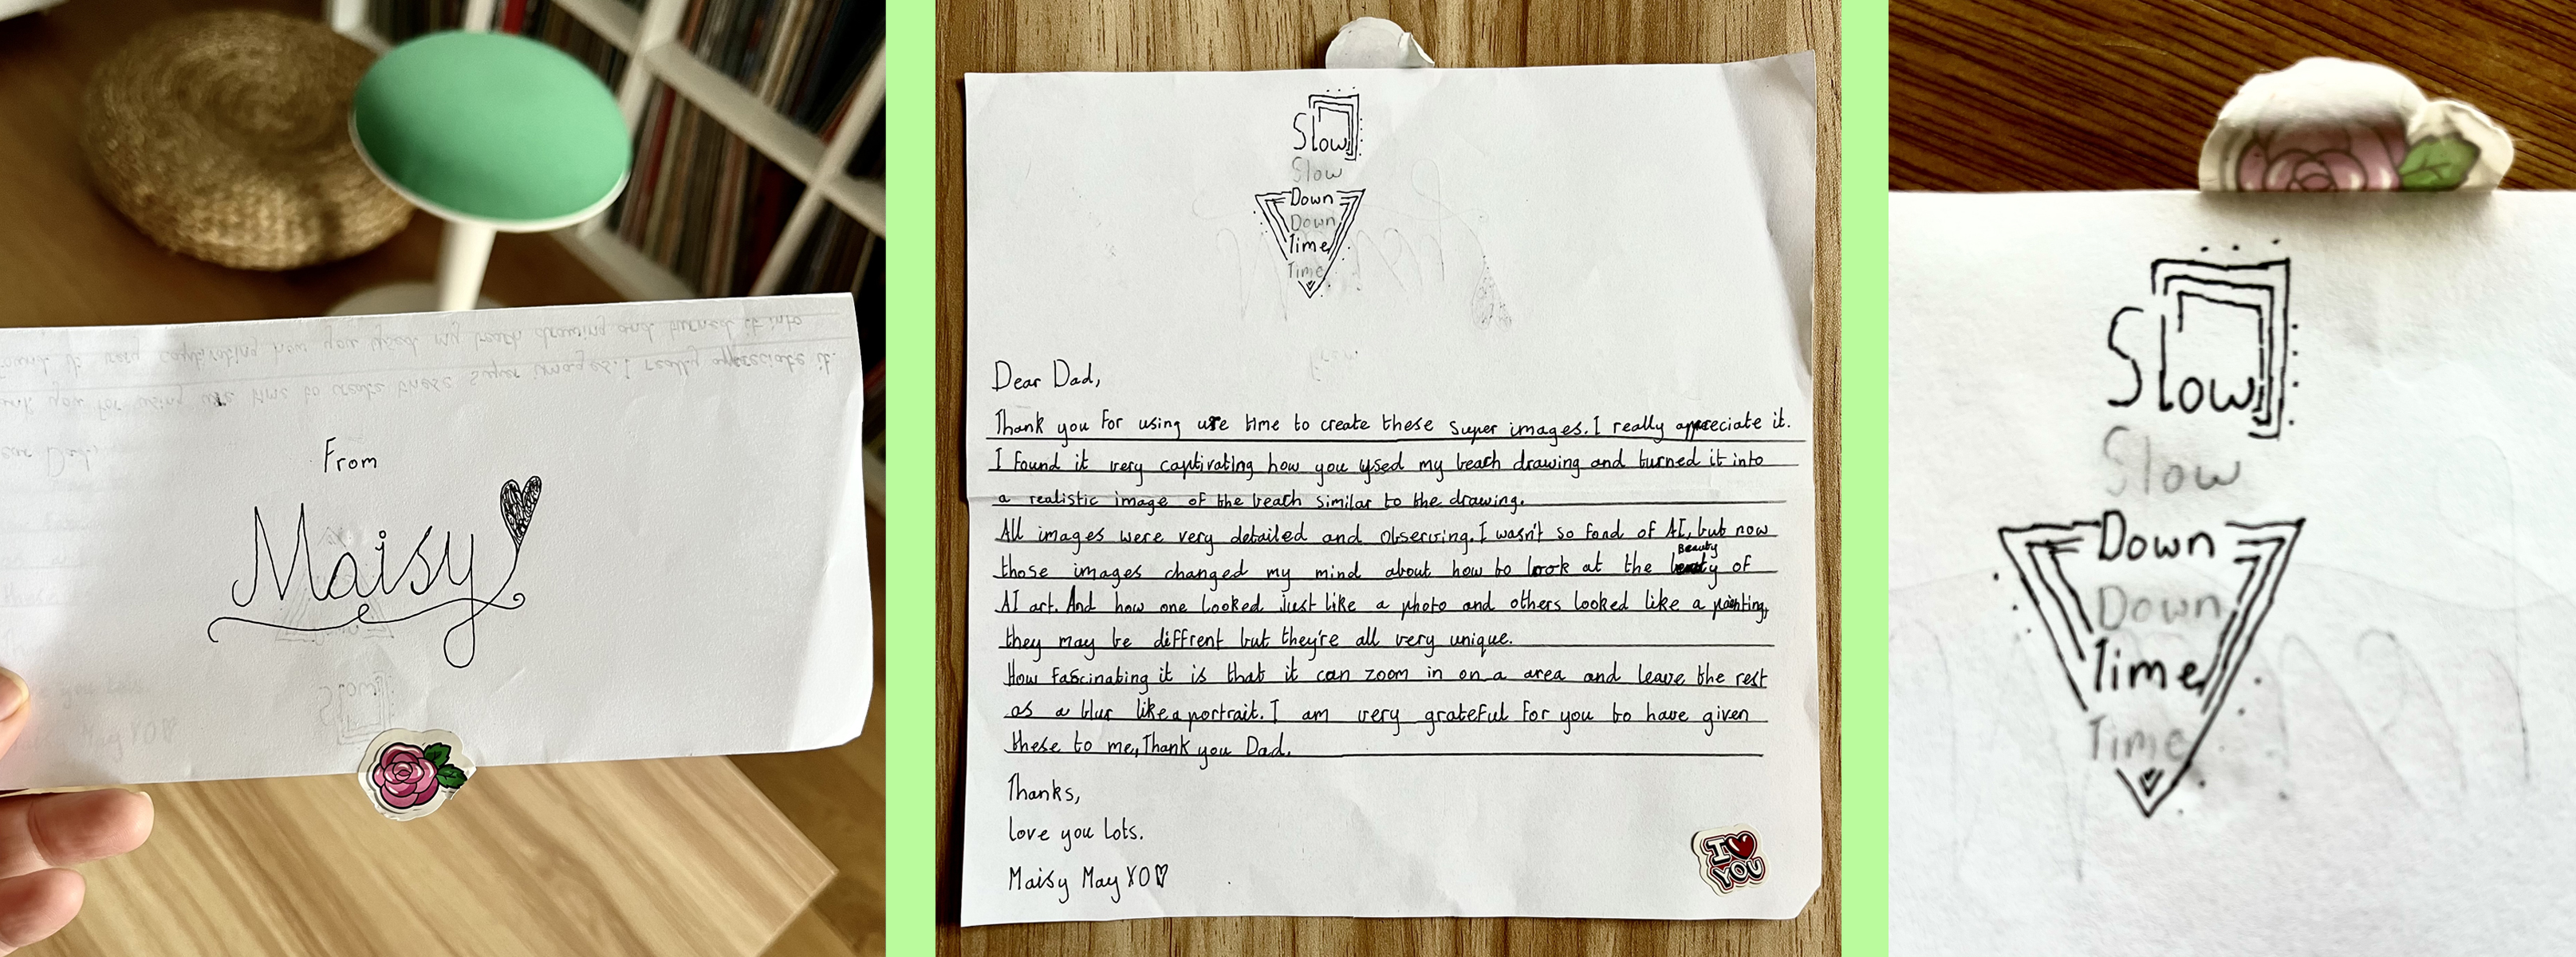 From
Maisy
Slow
Slow
Down
Down
Time
Time
Dear Dad,
Thank you for using ure time to create these super images. I really appreciate it.
I found it very captivating how you used my beach drawing and turned it into
a realistic image of the beach similar to the drawing.
All images were very detailed and observing. I wasn't so fond of AI, but now
those images changed my mind about how to look at the Beauty of
AI art. And how one looked just like a photo and others looked like a painting,
they may be diffrent but they're all very unique.
How fascinating it is that it can zoom in on a area and leave the rest
as a blur like a portrait. I am very grateful for you to have given
these to me, Thank you Dad.
Thanks,
love you lots.
Maisy May XO♡
I ♥
YOU
Slow
Slow
Down
Down
Time
Time